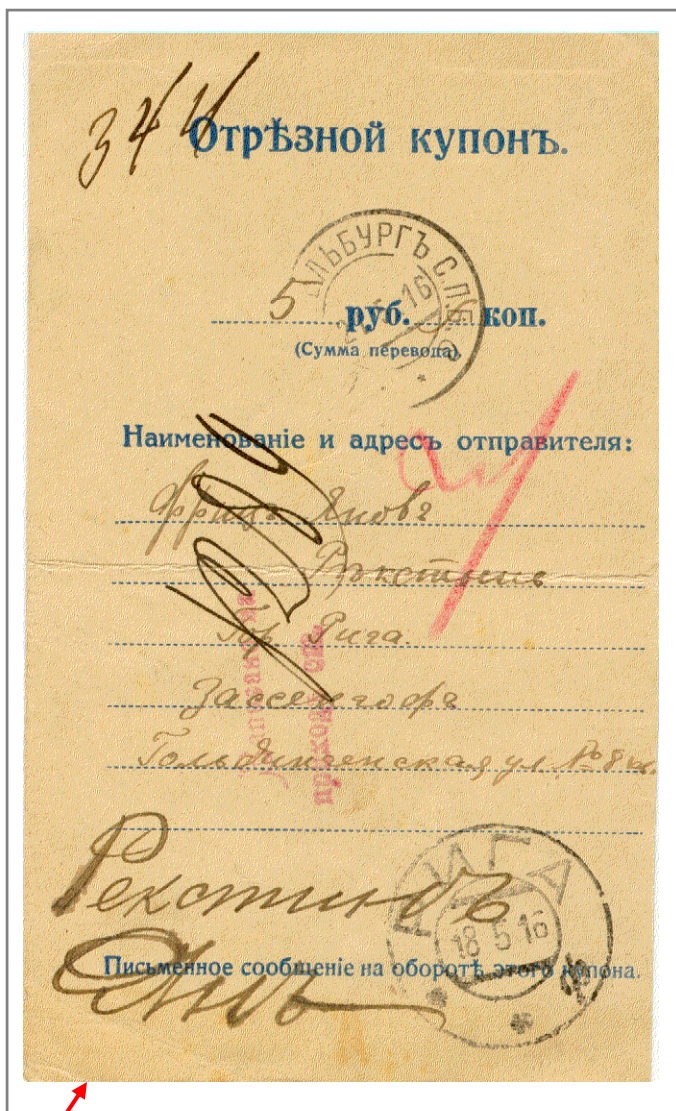 344
Отрѣзной купонъ.
ЛЬБУРГЪ С.П.Б.
16
5 руб. коп.
(Сумма перевода).
Наименованіе и адресъ отправителя:
Фрицъ Яновъ
Рѣкстынь
Гор Рига.
Зассенгофъ
Гольдингенская ул. № 8
Рекстинъ
РИГА
18 5 16
Письменное сообщеніе на оборотѣ этого купона.